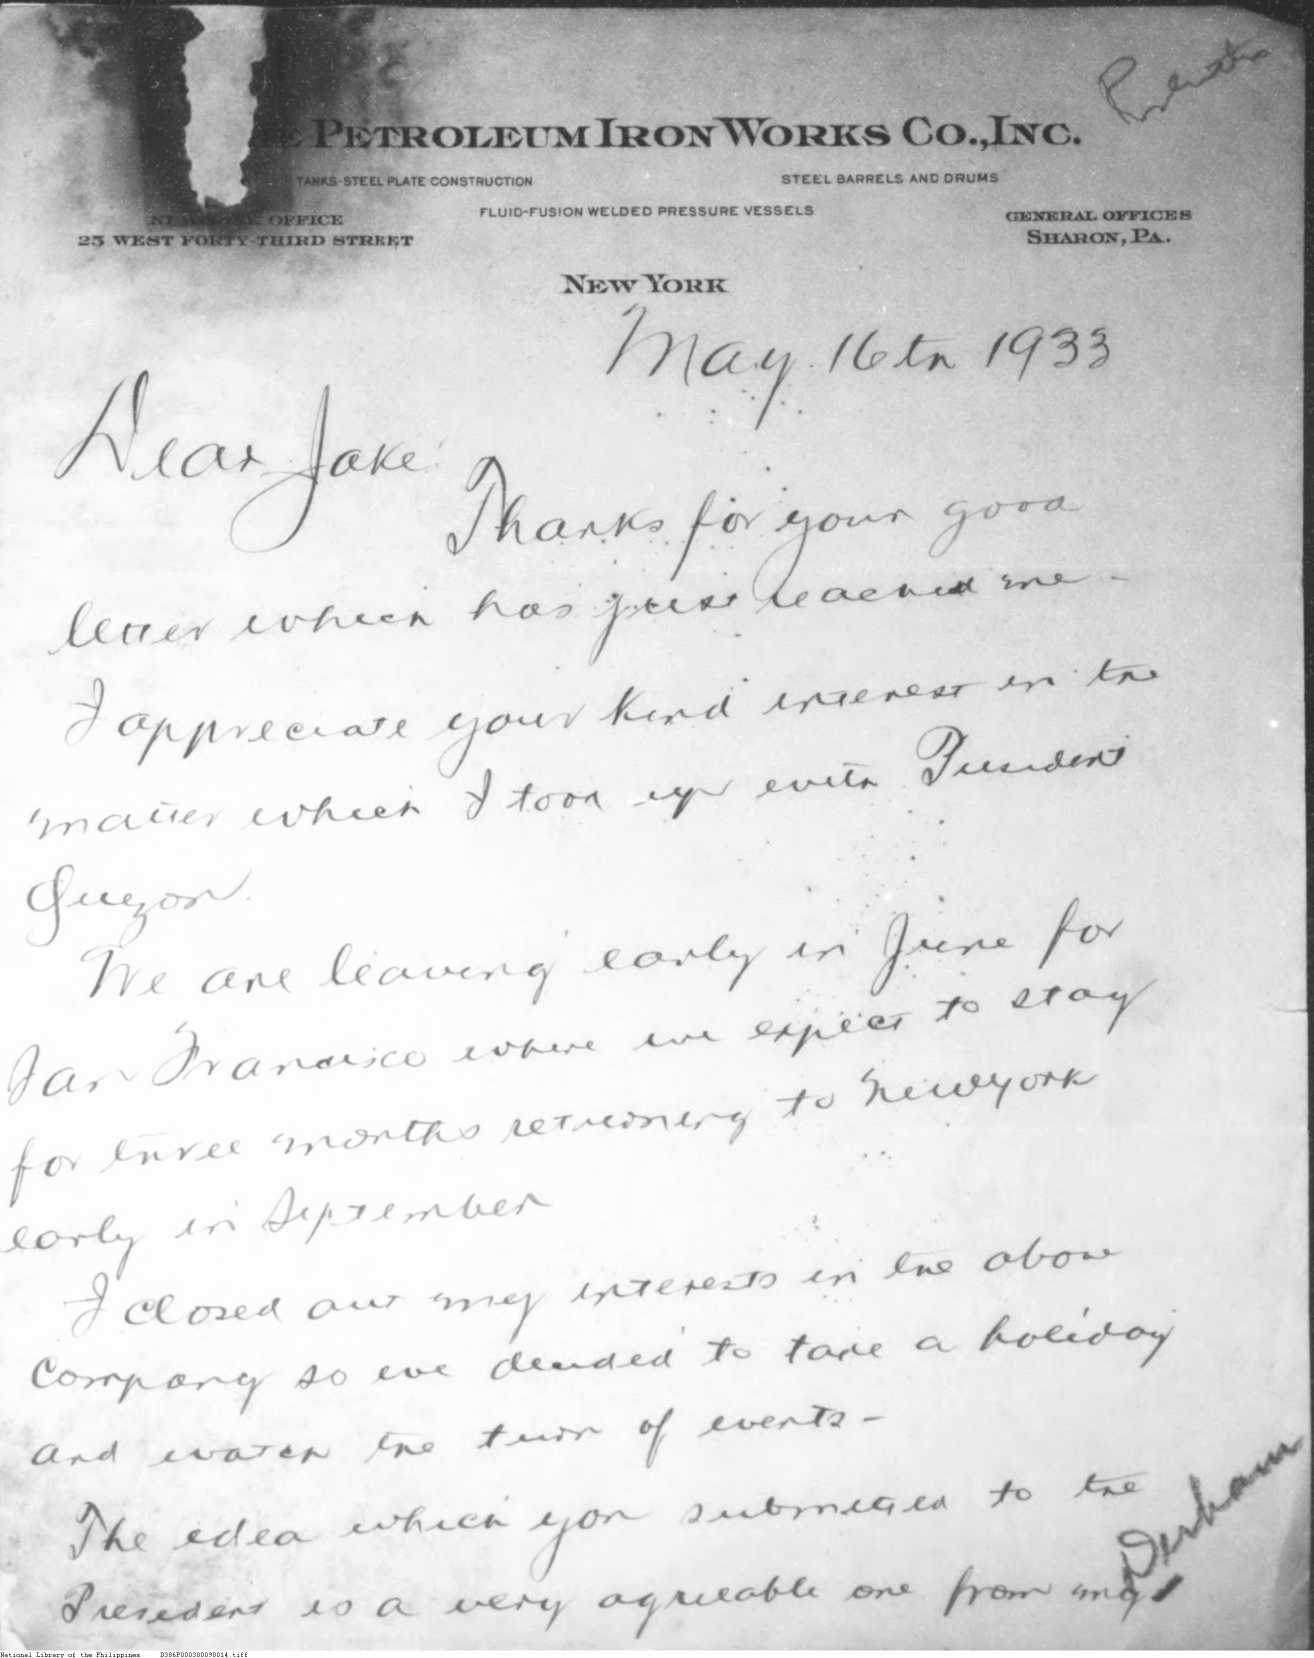 THE PETROLEUM IRON WORKS CO., INC.
TANKS-STEEL PLATE CONSTRUCTION STEEL BARRELS AND DRUMS
FLUID-FUSION WELDED PRESSURE VESSELS
NEW YORK OFFICE GENERAL OFFICES
25 WEST FORTY-THIRD STREET SHARON, PA.
NEW YORK
May 16th 1933
Dear Jake
Thanks for your good
letter which has just reached me -
I appreciate your kind interest in the
matter which I took up with President
Quezon.
We are leaving early in June for
San Francisco where we expect to stay
for three months returning to New York
early in September
I closed out my interests in the above
Company so we decided to take a holiday
and watch the turn of events -
The idea which you submitted to the
President is a very agreeable one from my
Derham
National Library of the Philippines D386P000300098014.tiff